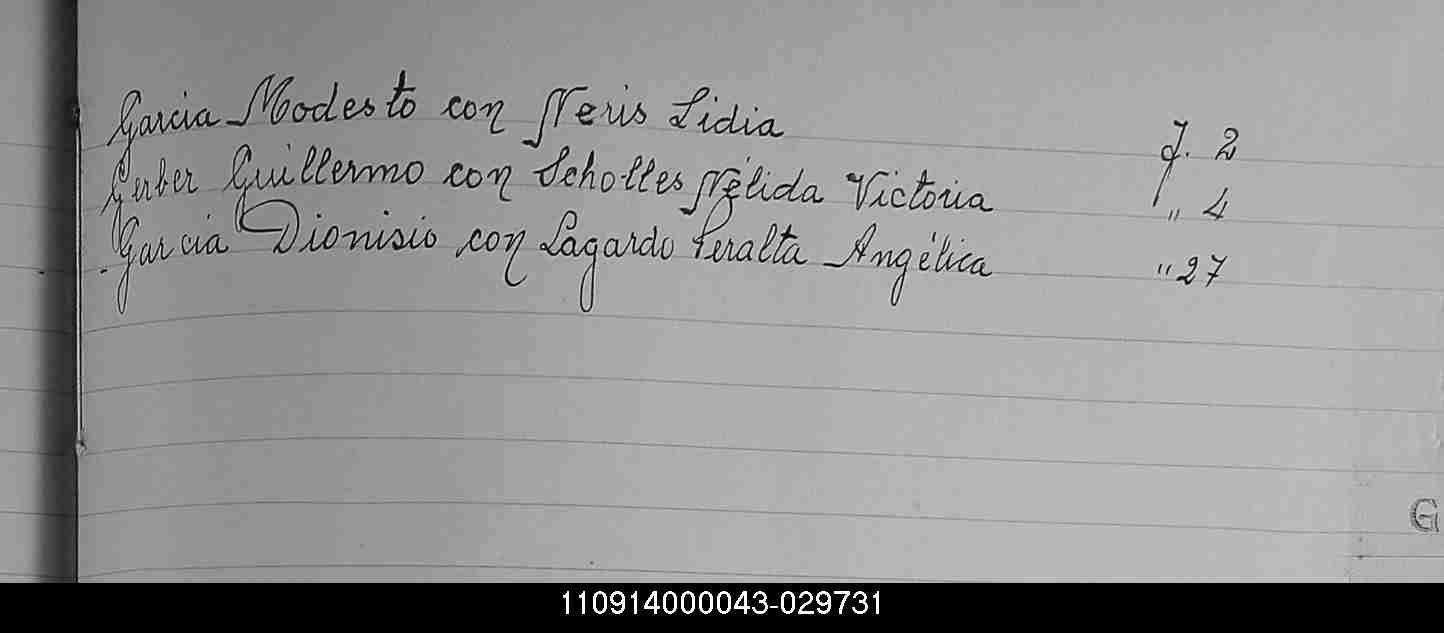 Garcia Modesto con Neris Lidia f. 2
Gerber Guillermo con Scholles Nélida Victoria " 4
Garcia Dionisio con Lagardo Peralta Angélica " 27
G
110914000043-029731